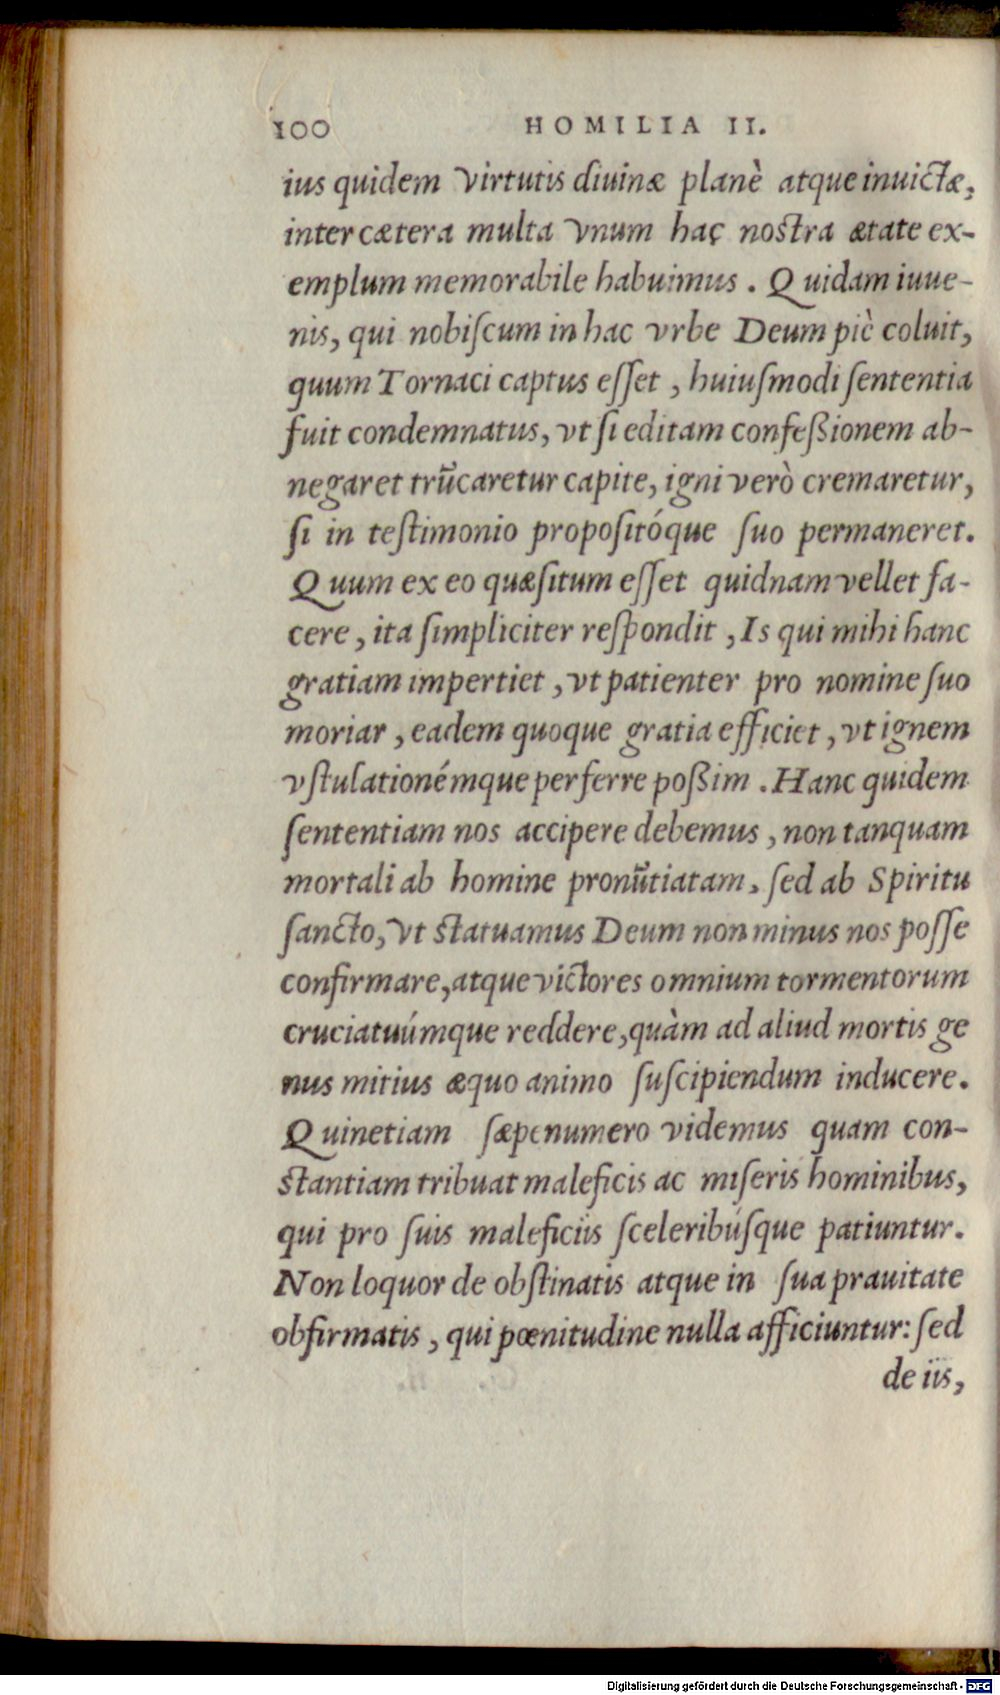 100 HOMILIA II.
ius quidem virtutis diuinæ planè atque inuictæ,
inter cætera multa vnum hac nostra ætate ex-
emplum memorabile habuimus. Quidam iuue-
nis, qui nobiſcum in hac vrbe Deum piè coluit,
quum Tornaci captus eſſet, huiuſmodi ſententia
fuit condemnatus, vt ſi editam confeßionem ab-
negaret trũcaretur capite, igni verò cremaretur,
ſi in teſtimonio propoſitóque ſuo permaneret.
Quum ex eo quæſitum eſſet quidnam vellet fa-
cere, ita ſimpliciter reſpondit, Is qui mihi hanc
gratiam impertiet, vt patienter pro nomine ſuo
moriar, eadem quoque gratia efficiet, vt ignem
vſtulationémque perferre poßim. Hanc quidem
ſententiam nos accipere debemus, non tanquam
mortali ab homine pronũtiatam, ſed ab Spiritu
ſancto, vt ſtatuamus Deum non minus nos poſſe
confirmare, atque victores omnium tormentorum
cruciatuúmque reddere, quàm ad aliud mortis ge
nus mitius æquo animo ſuſcipiendum inducere.
Quinetiam ſæpenumero videmus quam con-
ſtantiam tribuat maleficis ac miſeris hominibus,
qui pro ſuis maleficiis ſceleribúſque patiuntur.
Non loquor de obſtinatis atque in ſua prauitate
obfirmatis, qui pœnitudine nulla afficiuntur: ſed
de iis,
Digitalisierung gefördert durch die Deutsche Forschungsgemeinschaft - DFG